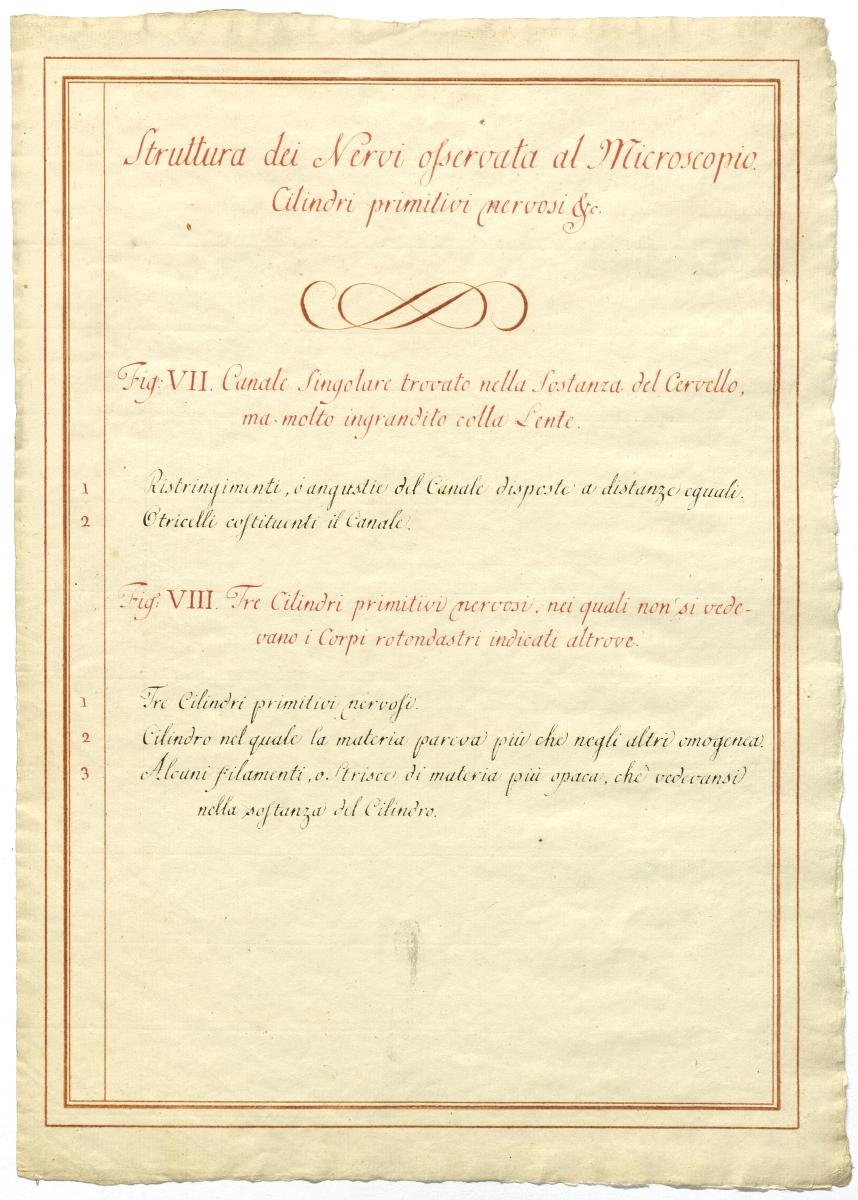 Struttura dei Nervi osservata al Microscopio.
Cilindri primitivi nervosi &c.
Fig: VII. Canale Singolare trovato nella Sostanza del Cervello,
ma molto ingrandito colla Lente.
1 Ristringimenti, o angustie del Canale disposte a distanze eguali.
2 Otricelli costituenti il Canale.
Fig: VIII. Tre Cilindri primitivi nervosi, nei quali non si vede-
vano i Corpi rotondastri indicati altrove.
1 Tre Cilindri primitivi nervosi.
2 Cilindro nel quale la materia pareva più che negli altri omogenea.
3 Alcuni filamenti, o Strisce di materia più opaca, che vedevansi
nella sostanza del Cilindro.